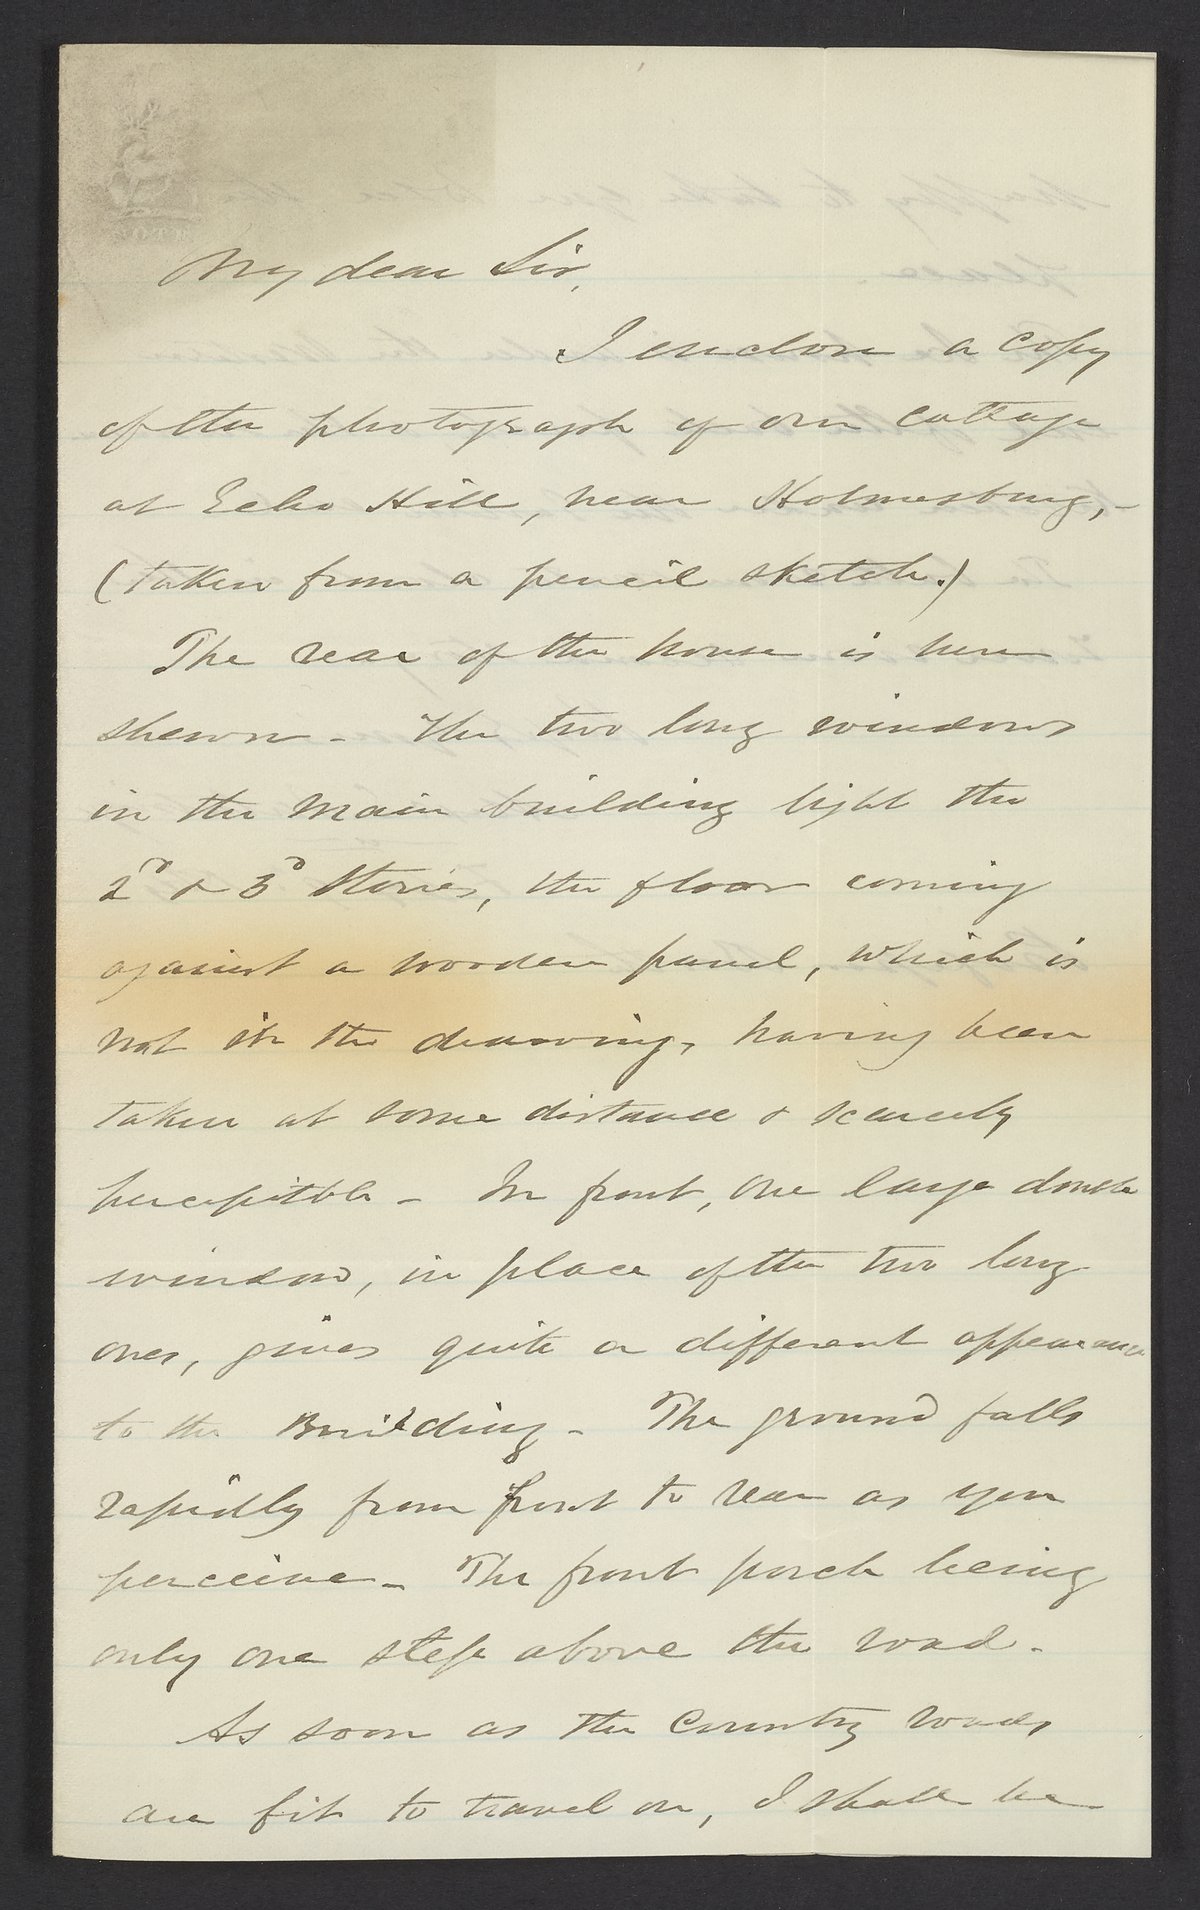 My dear Sir,
I enclose a copy
of the photograph of our cottage
at Echo Hill, near Holmesburg, -
(taken from a pencil sketch.)
The rear of the house is here
shewn - The two long windows
in the main building light the
2d & 3d Stories, the floor coming
against a wooden panel, which is
not in the drawing, having been
taken at some distance & scarcely
perceptible - In front, one large double
window, in place of the two long
ones, gives quite a different appearance
to the Building - The ground falls
rapidly from front to rear as you
perceive - The front porch being
only one step above the road -
As soon as the Country roads
are fit to travel on, I shall be